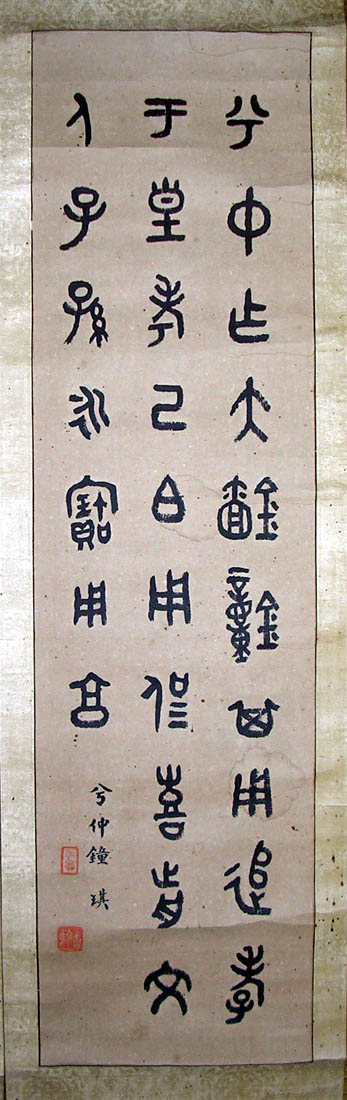 兮中乍大鐘其用追孝
于皇考己白用侃喜歬文
人子孫永寶用亯
兮仲鐘 琪